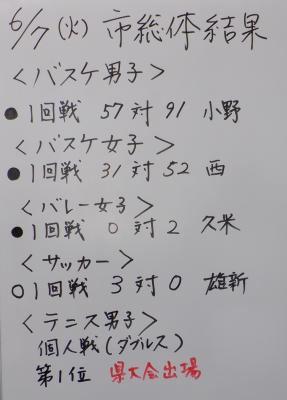 6/7(火)市総体結果
<バスケ男子>
●1回戦 57対91 小野
<バスケ女子>
●1回戦 31対52 西
<バレー女子>
●1回戦 0対2 久米
<サッカー>
○1回戦 3対0 雄新
<テニス男子>
個人戦(ダブルス)
第1位 県大会出場